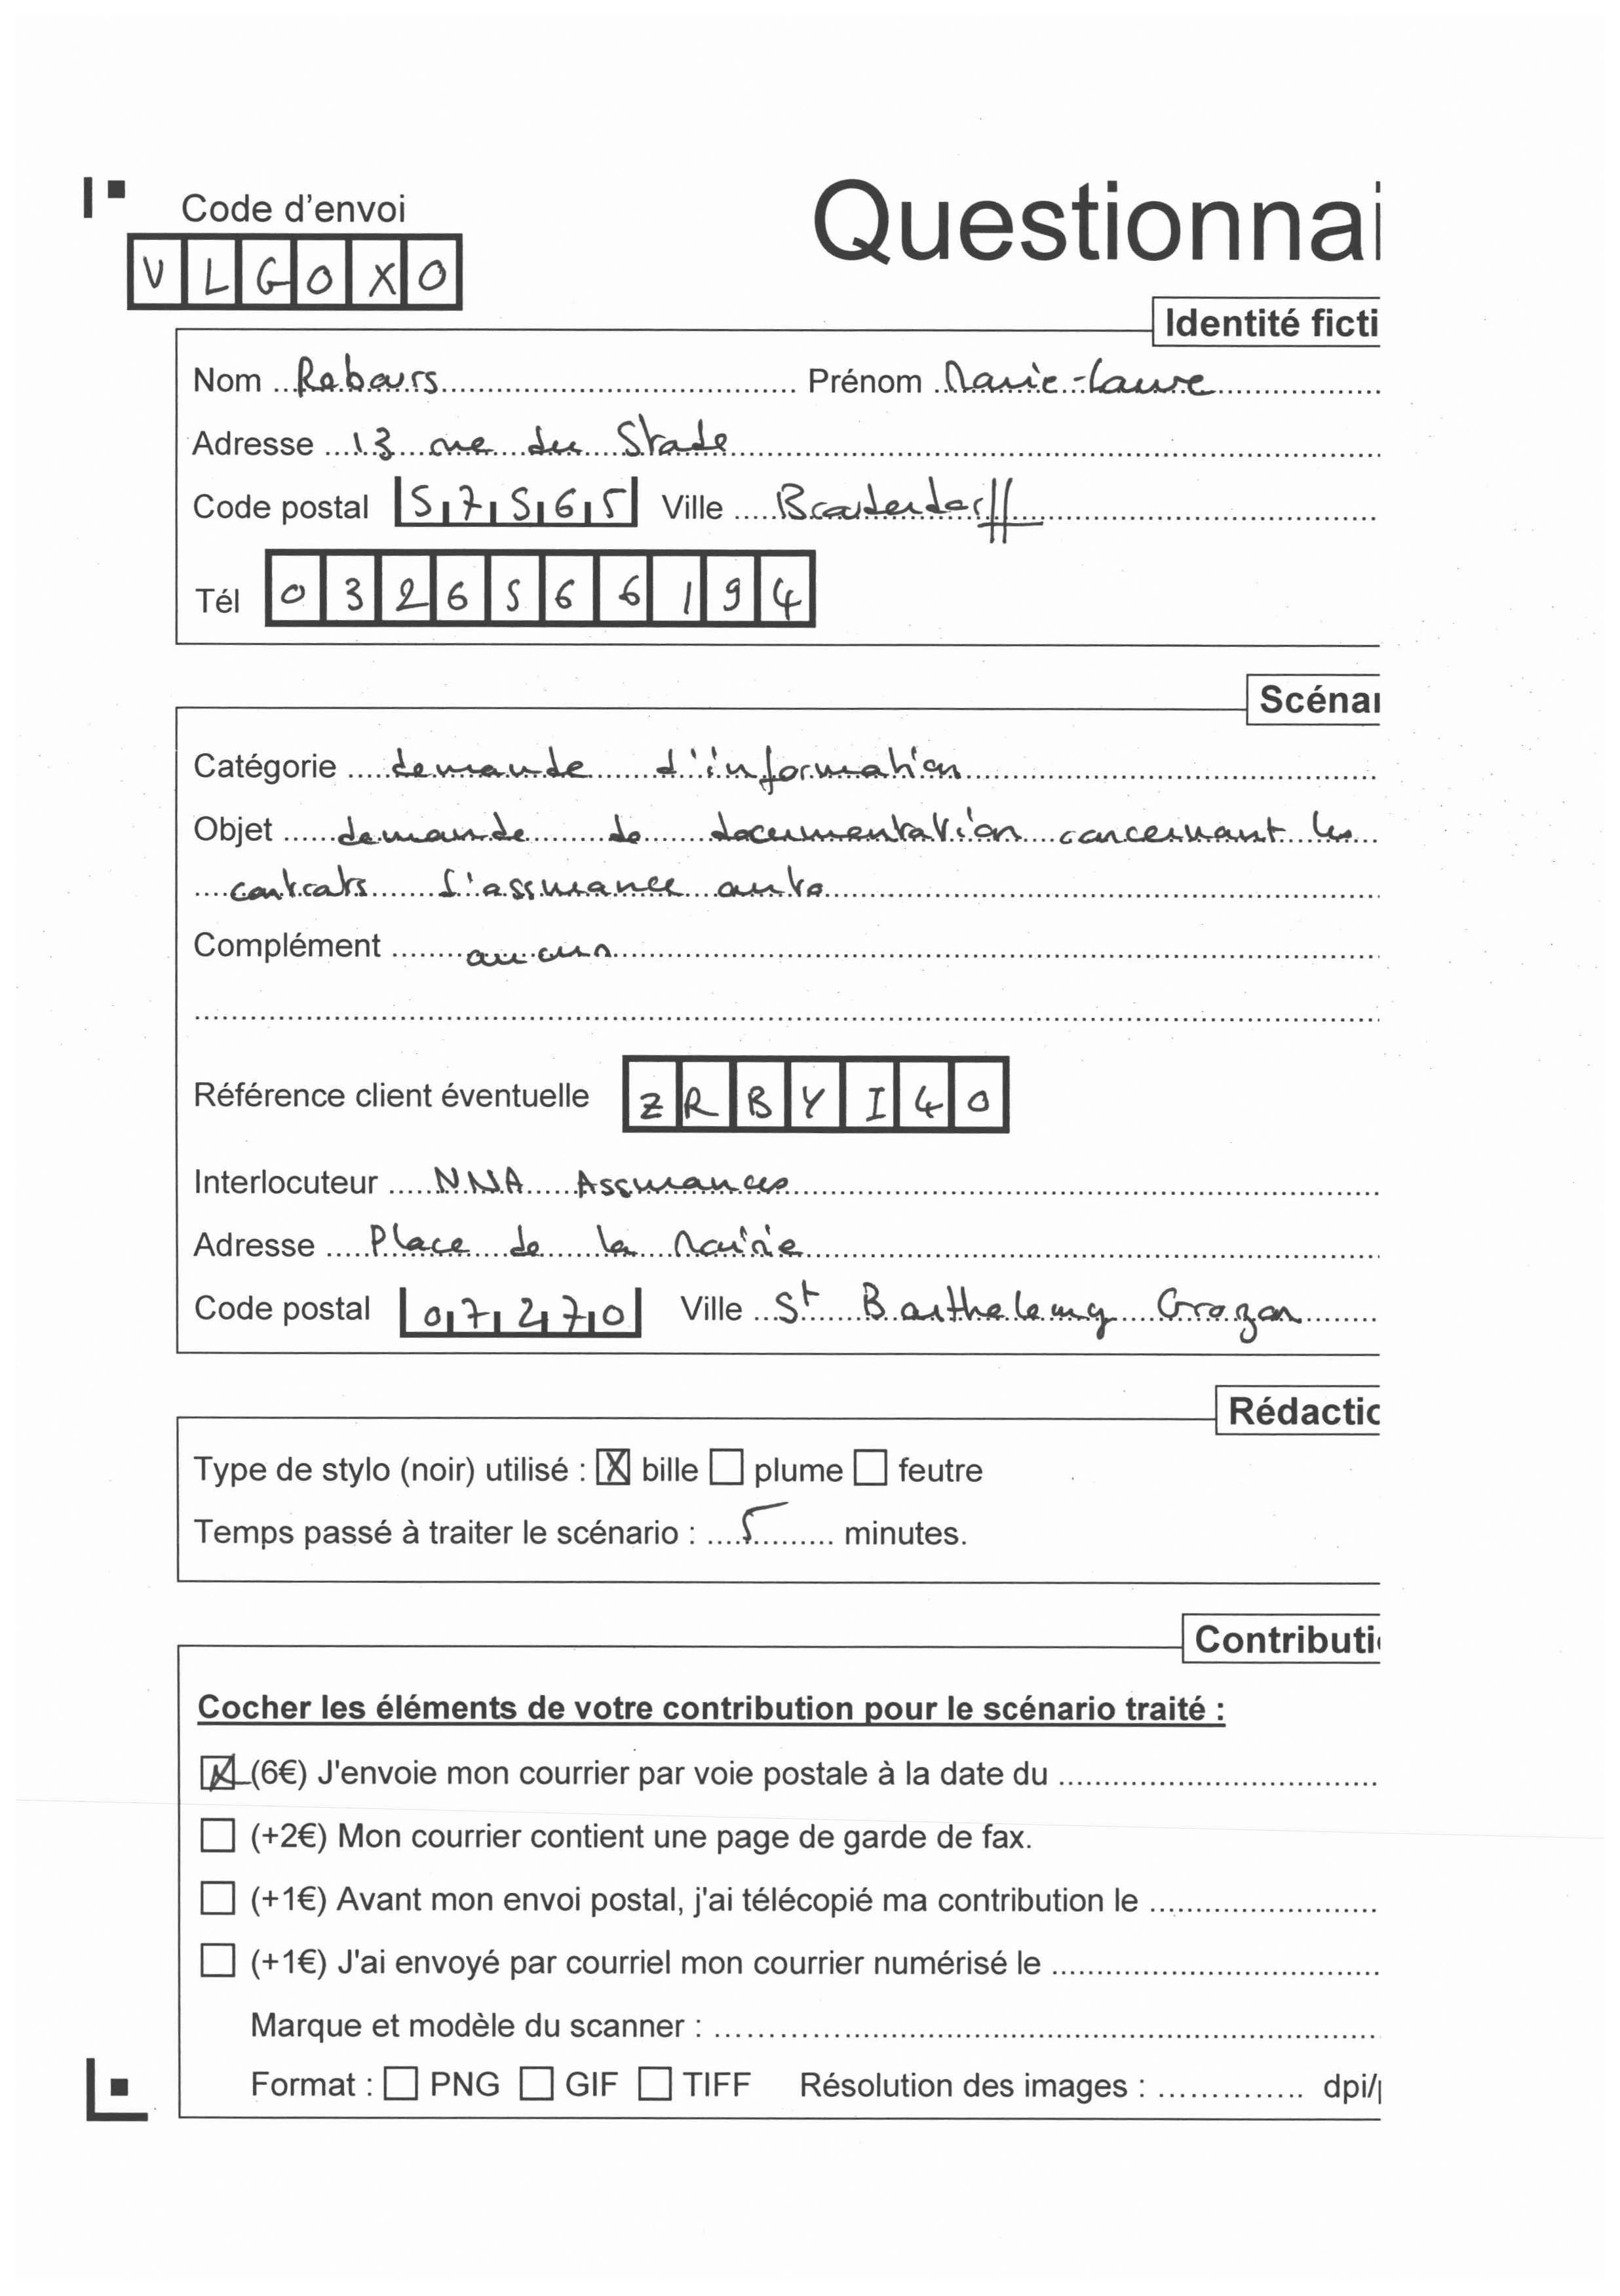 Code d'envoi
VLGOXO
Questionnai
Identité ficti
Nom Rebours Prénom Marie-Laure
Adresse 13 rue du Stade
Code postal 57565 Ville Brouderdorff
Tél 0326566194
Scénar
Catégorie demande d'information
Objet demande de documentation concernant les
contrats d'assurance auto
Complément aucun
Référence client éventuelle ZRBYI40
Interlocuteur NNA Assurances
Adresse Place de la Mairie
Code postal 07270 Ville St Barthelemy Grozon
Rédactio
Type de stylo (noir) utilisé : ☒ bille ☐ plume ☐ feutre
Temps passé à traiter le scénario : 5 minutes.
Contributi
Cocher les éléments de votre contribution pour le scénario traité :
☒ (6€) J'envoie mon courrier par voie postale à la date du
☐ (+2€) Mon courrier contient une page de garde de fax.
☐ (+1€) Avant mon envoi postal, j'ai télécopié ma contribution le
☐ (+1€) J'ai envoyé par courriel mon courrier numérisé le
Marque et modèle du scanner :
Format : ☐ PNG ☐ GIF ☐ TIFF Résolution des images : dpi/